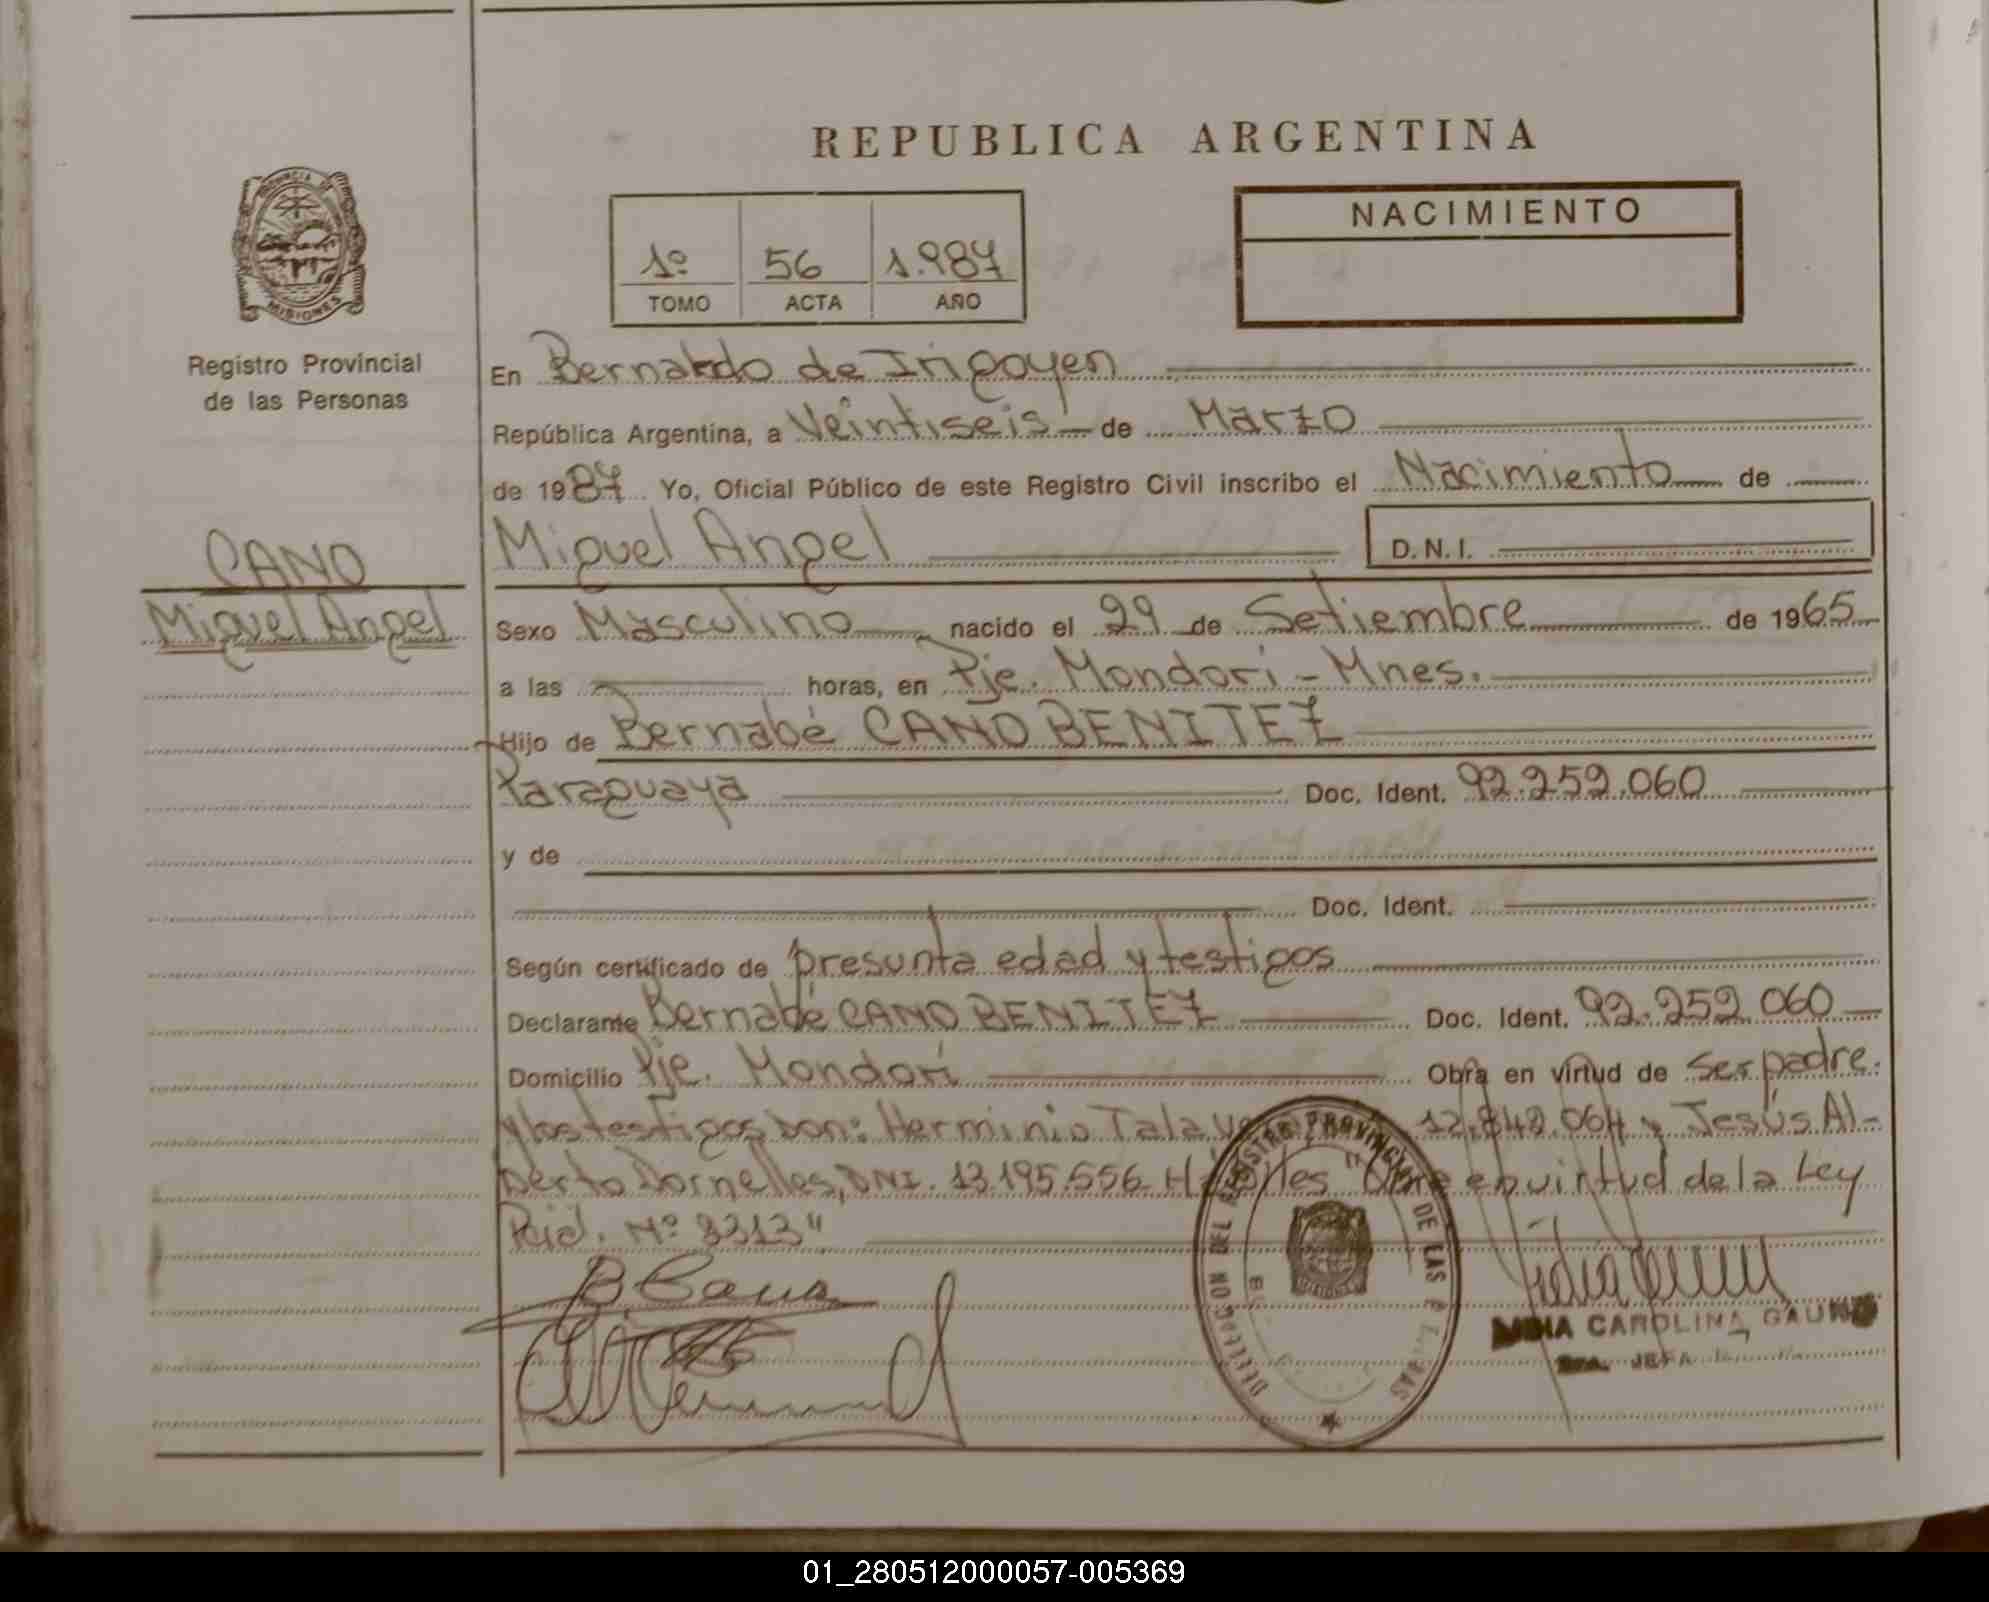 REPUBLICA ARGENTINA
PROVINCIA DE MISIONES
Registro Provincial
de las Personas
1º 56 1.987
TOMO ACTA AÑO
NACIMIENTO
En Bernardo de Irigoyen
República Argentina, a Veintiseis de Marzo
de 1987 Yo, Oficial Público de este Registro Civil inscribo el Nacimiento de
CANO
Miguel Angel
Miguel Angel D.N.I.
Sexo Masculino nacido el 29 de Setiembre de 1965
a las horas, en Pje. Mondori - Mnes.
Hijo de Bernabé CANO BENITEZ
Paraguaya Doc. Ident. 92.252.060
y de
Doc. Ident.
Según certificado de presunta edad y testigos
Declarante Bernabé CANO BENITEZ Doc. Ident. 92.252.060
Domicilio Pje. Mondori Obra en virtud de ser padre.
y los testigos son: Herminio 12.842.064 y Jesús Al-
berto Dornelles, DNI. 13.195.556 Hábiles "Obra en virtud de la Ley
Nº 3313"
B Cano
DEL REGISTRO PROVINCIAL DE LAS
CAROLINA
JEFA
01_280512000057-005369